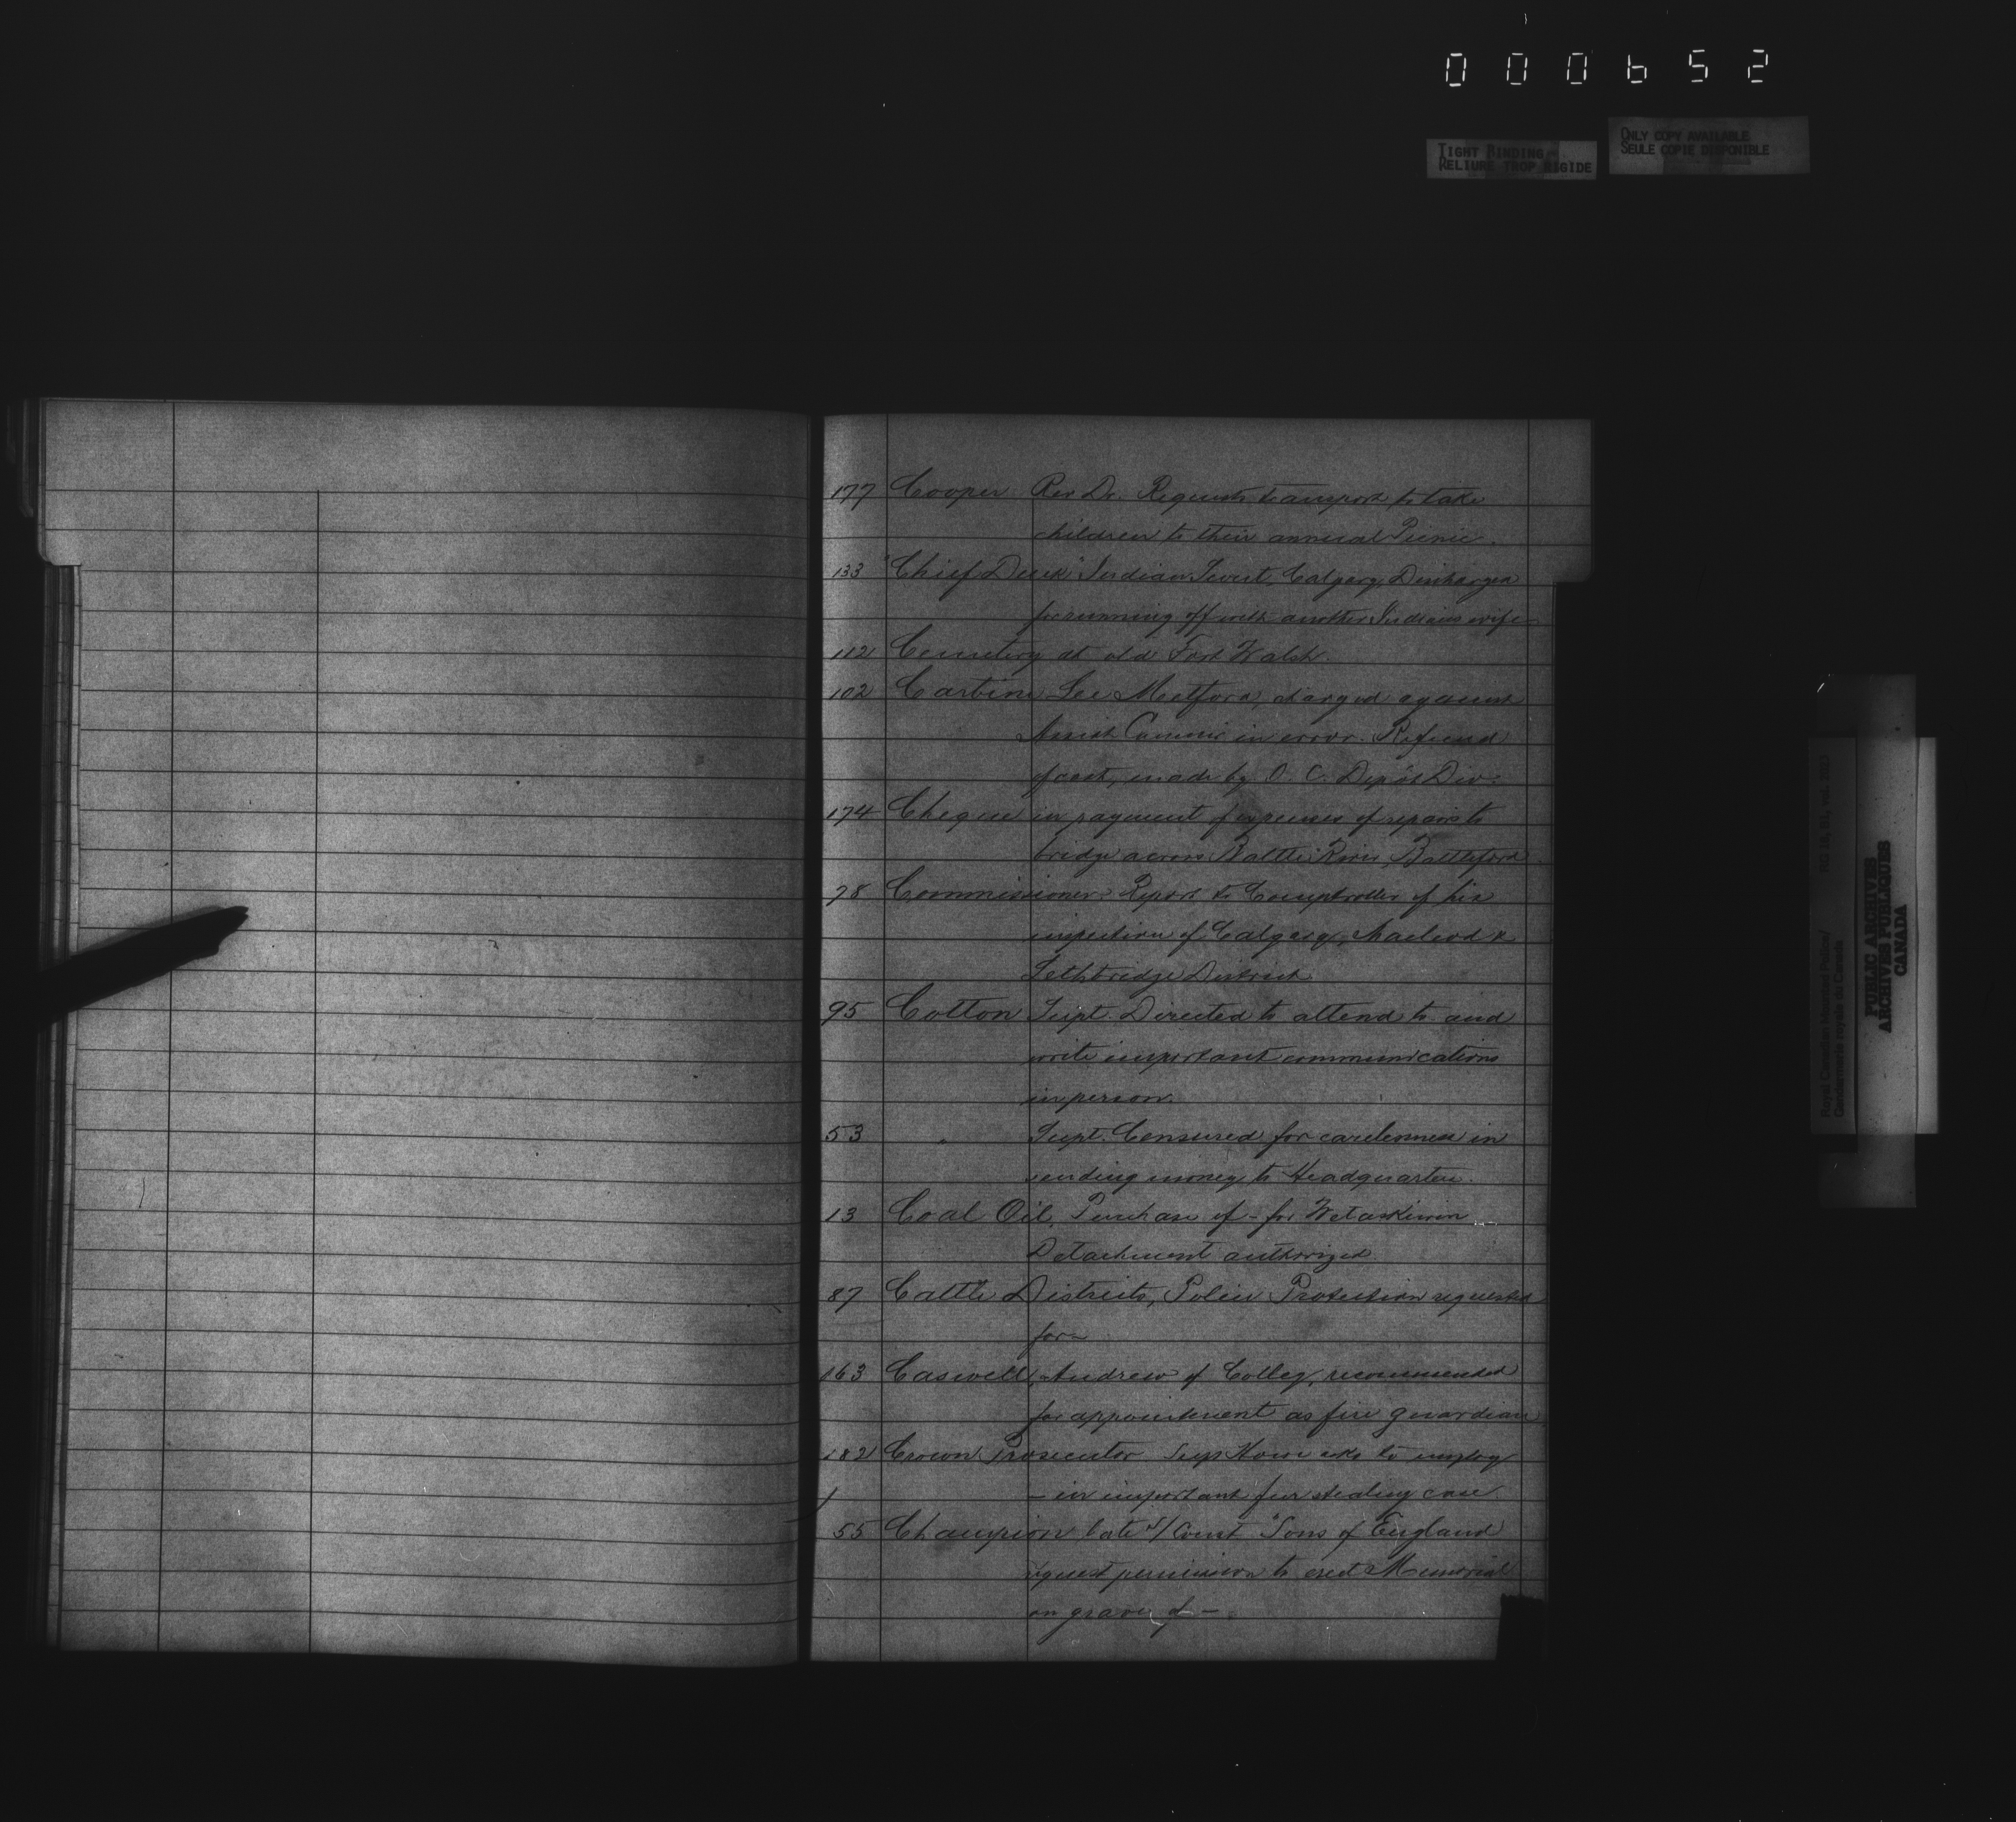 000652
TIGHT BINDING
RELIURE TROP RIGIDE
ONLY COPY AVAILABLE
SEULE COPIE DISPONIBLE
177 Cooper Rev Dr. Requests transport to take
children to their annual Picnic.
133 "Chief Duck" Indian Scout, Calgary, Discharged
for running off with another Indians wife
112 Cemetery at old Fort Walsh.
102 Carbine Lee Metford, charged against
Assist Commr in error. Refund
of cost, made by O. C. Depôt Div.
174 Cheque in payment of expenses of repairs to
bridge across Battle River, Battleford.
78 Commissioner. Report to Comptroller of his
inspection of Calgary, Macleod &
Lethbridge District.
95 Cotton Supt. Directed to attend to and
write important communications
in person.
53 " Supt. Censured for carelessness in
sending money to Headquarters.
13 Coal Oil, Purchase of - for Wetaskiwin
Detachment authorized.
87 Cattle Districts, Police Protection requested
for -
163 Caswell, Andrew of Colley, recommended
for appointment as fire guardian
182 Crown Prosecutor Supt Howe asks to employ
- in important fur stealing case.
55 Champion late S/Const "Sons of England
request permission to erect Memorial
on grave of -
Royal Canadian Mounted Police/
Gendarmerie royale du Canada
RG 18, B1, vol. 2023
PUBLIC ARCHIVES
ARCHIVES PUBLIQUES
CANADA